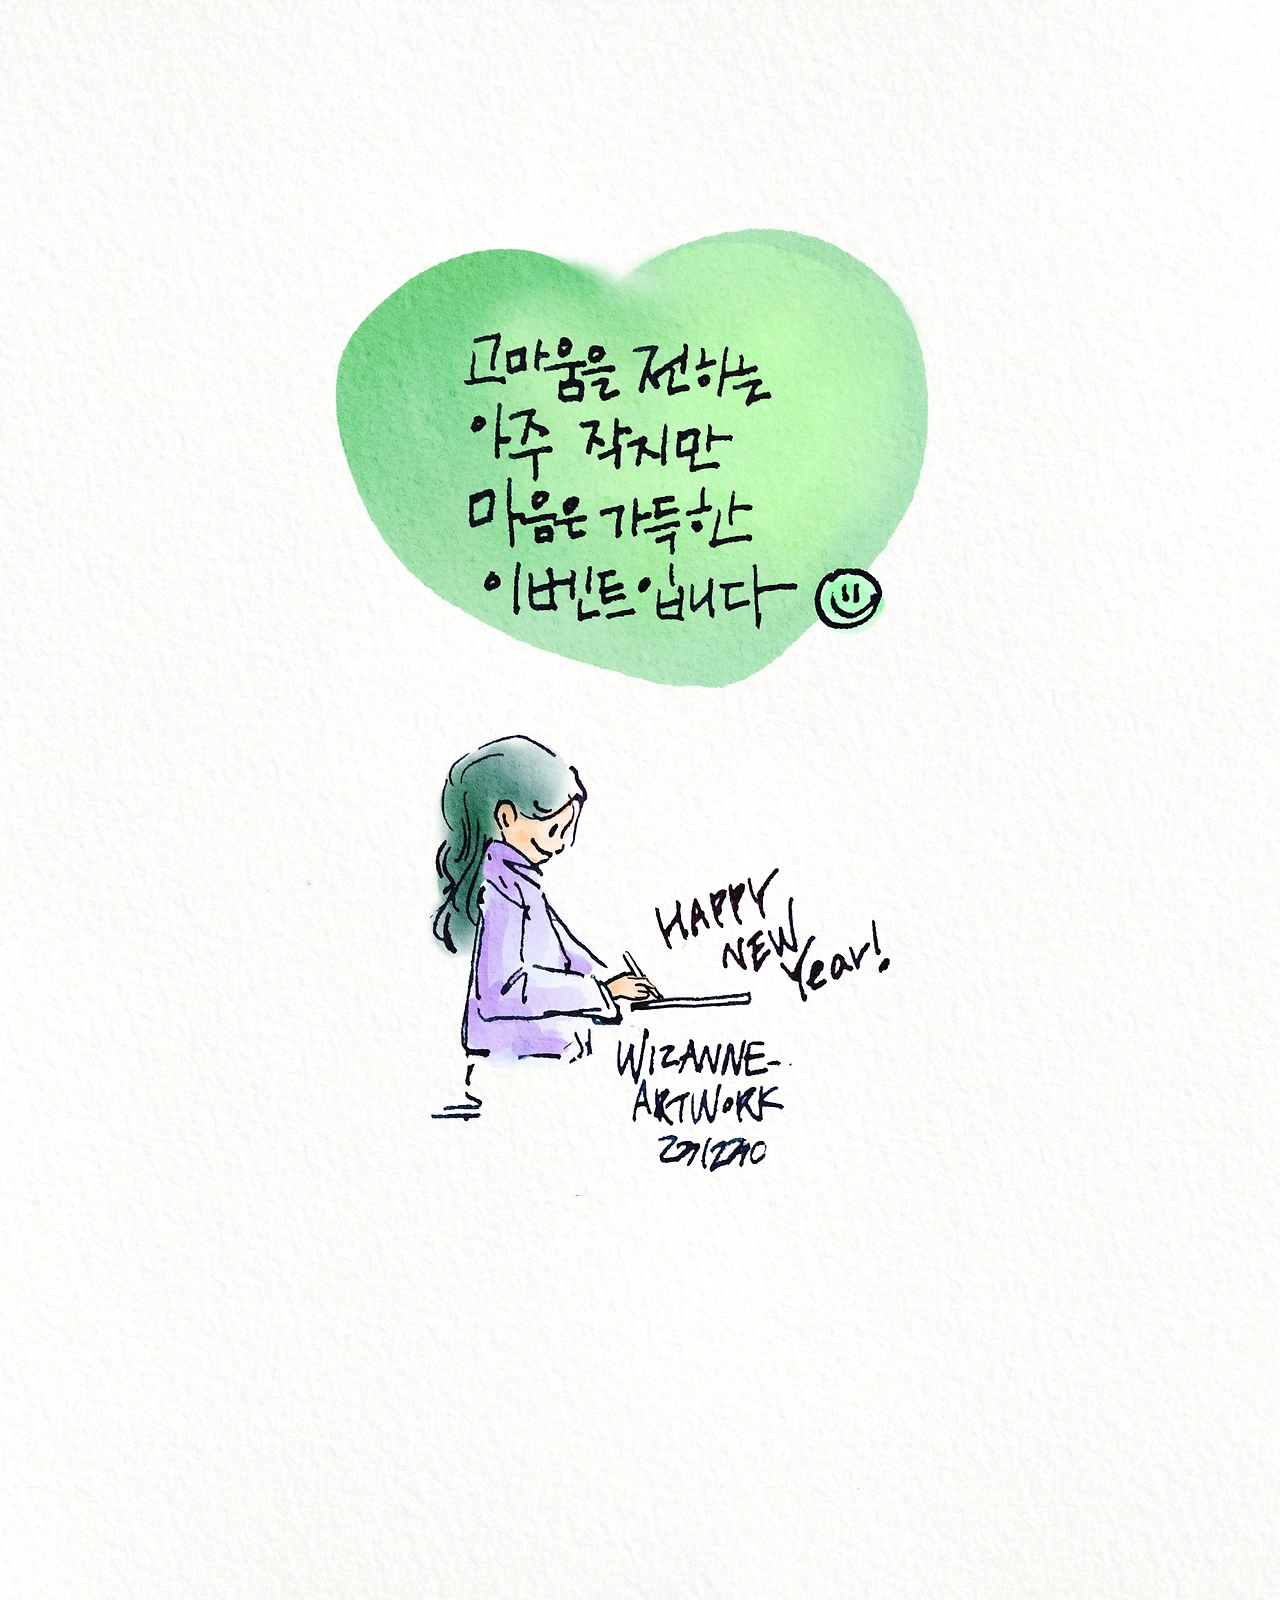 고마움을 전하는
아주 작지만
마음은 가득한
이벤트입니다
HAPPY
NEW
Year!
WIZANNE-
ARTWORK